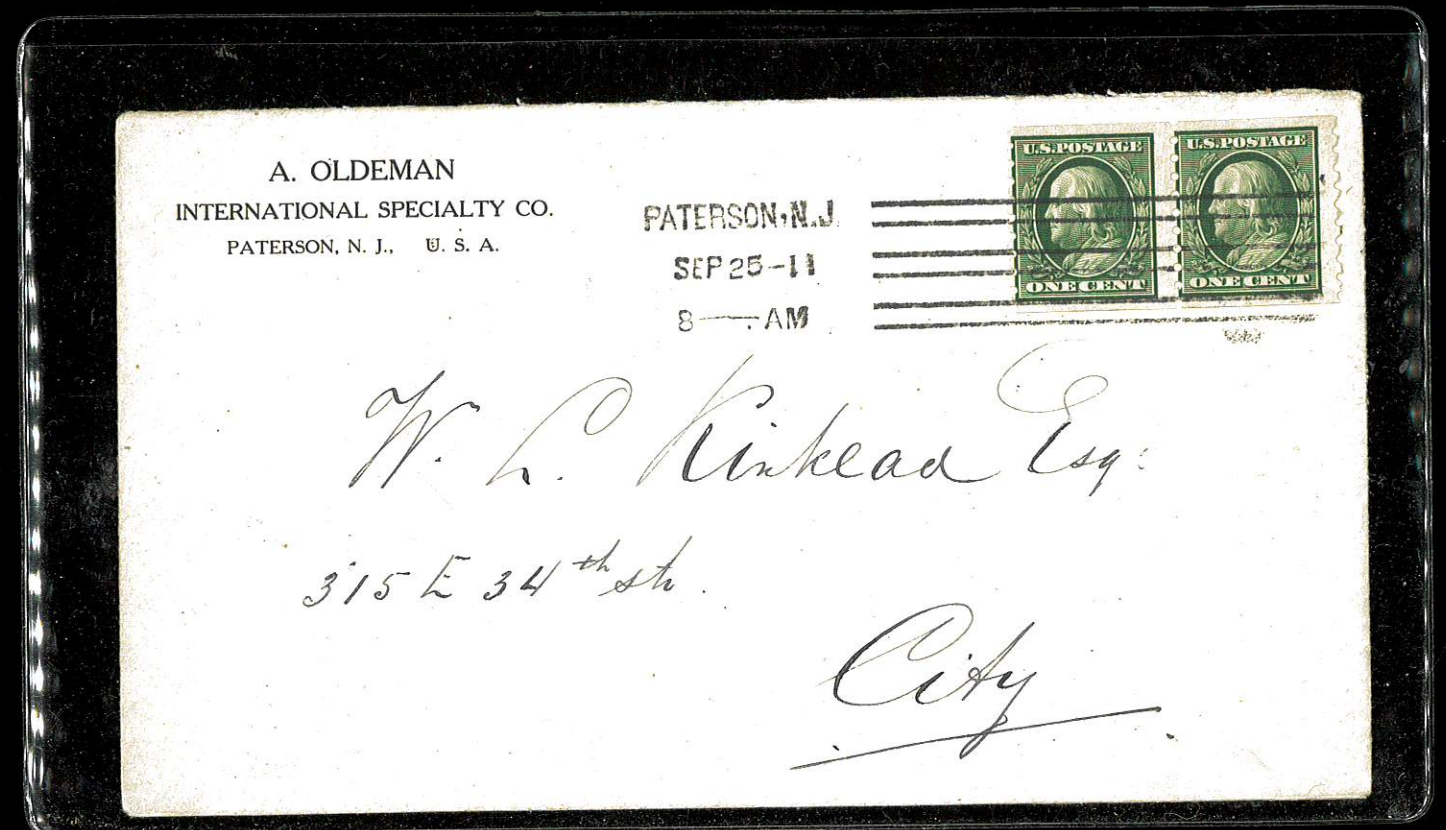 A. OLDEMAN
INTERNATIONAL SPECIALTY CO.
PATERSON, N. J., U. S. A.
PATERSON, N.J.
SEP 25 - 11
8 — AM
U.S. POSTAGE
ONE CENT
U.S. POSTAGE
ONE CENT
W. L. Kinkead Esq:
315 E 34th str.
City